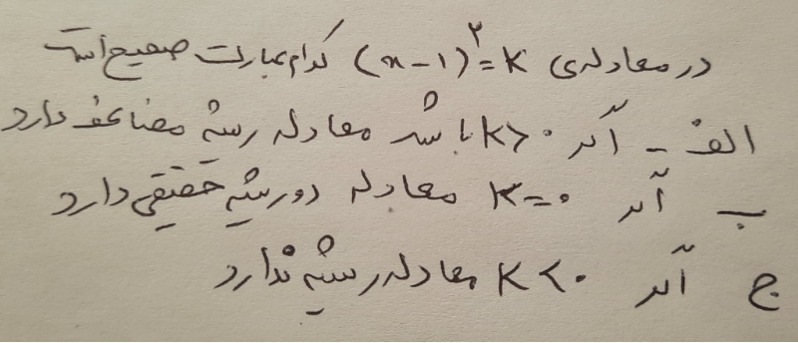 در معادله‌ی (x-1)²=K کدام عبارت صحیح است
الف - اگر K>0 باشد معادله ریشه مضاعف دارد
ب اگر K=0 معادله دو ریشه حقیقی دارد
ج اگر K<0 معادله ریشه ندارد